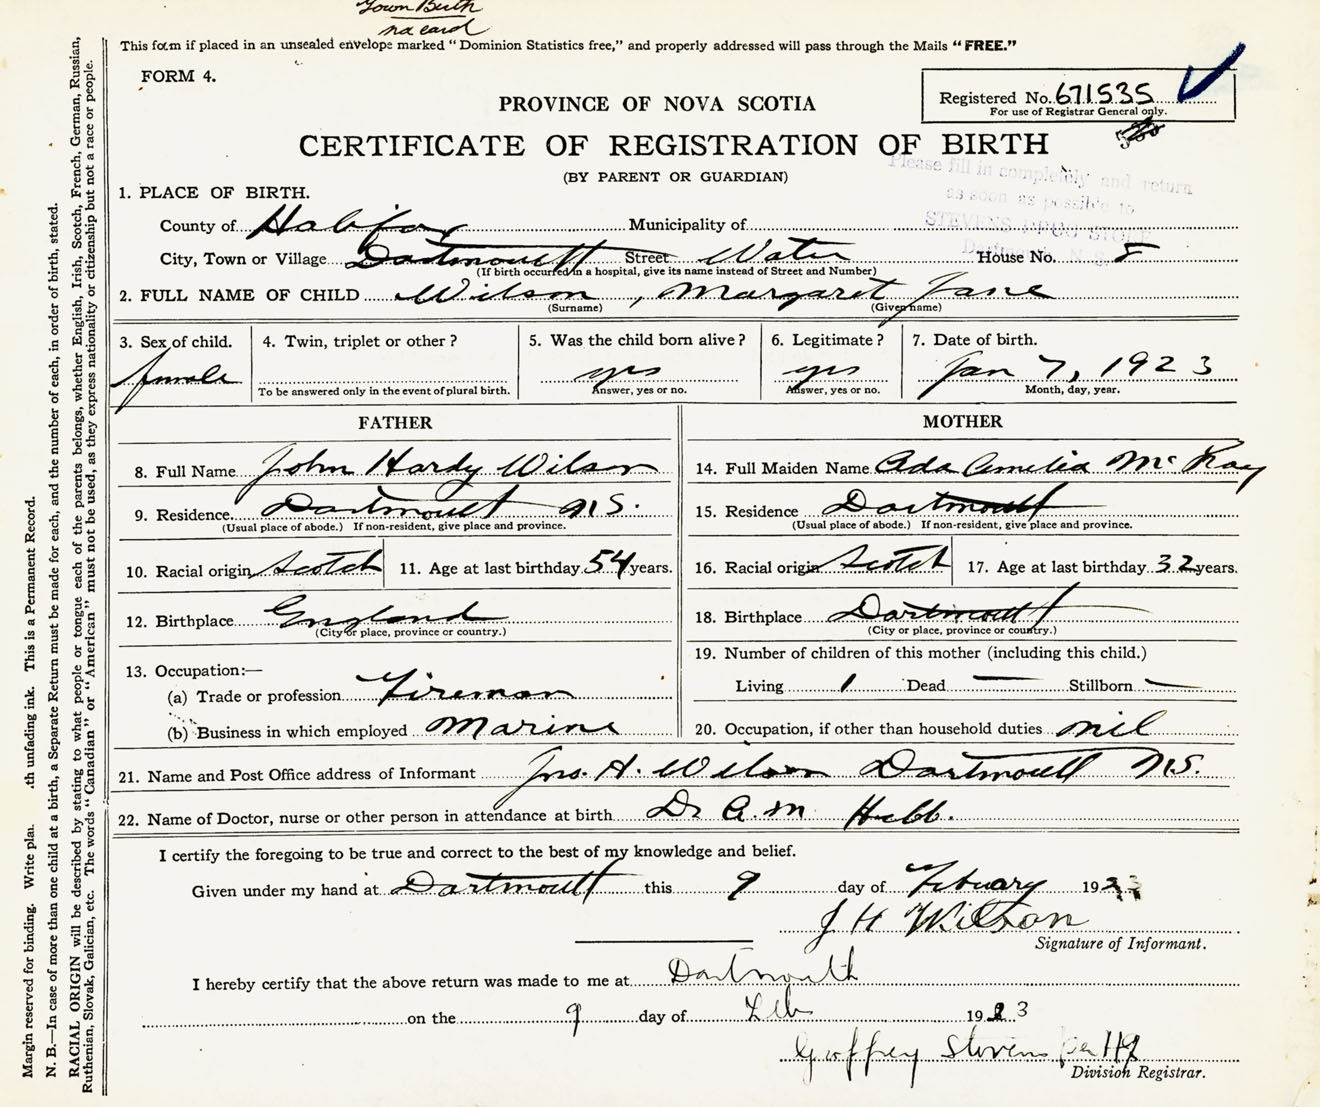 Town Birth
no card
This form if placed in an unsealed envelope marked "Dominion Statistics free," and properly addressed will pass through the Mails "FREE."
FORM 4.
Registered No. 671535
For use of Registrar General only.
PROVINCE OF NOVA SCOTIA
CERTIFICATE OF REGISTRATION OF BIRTH
(BY PARENT OR GUARDIAN)
Please fill in completely and return
as soon as possible to
STEVENS DRUG STORE
Dartmouth, N.S.
1. PLACE OF BIRTH.
County of Halifax Municipality of
City, Town or Village Dartmouth Street Water House No. 8
(If birth occurred in a hospital, give its name instead of Street and Number)
2. FULL NAME OF CHILD Wilson, Margaret Jane
(Surname) (Given name)
3. Sex of child. 4. Twin, triplet or other? 5. Was the child born alive? 6. Legitimate? 7. Date of birth.
female yes yes Jan 7, 1923
To be answered only in the event of plural birth. Answer, yes or no. Answer, yes or no. Month, day, year.
FATHER
8. Full Name John Hardy Wilson
9. Residence Dartmouth N.S.
(Usual place of abode.) If non-resident, give place and province.
10. Racial origin Scotch 11. Age at last birthday 54 years.
12. Birthplace England
(City or place, province or country.)
13. Occupation:—
(a) Trade or profession Fireman
(b) Business in which employed Marine
MOTHER
14. Full Maiden Name Ada Amelia McKay
15. Residence Dartmouth
(Usual place of abode.) If non-resident, give place and province.
16. Racial origin Scotch 17. Age at last birthday 32 years.
18. Birthplace Dartmouth
(City or place, province or country.)
19. Number of children of this mother (including this child.)
Living 1 Dead — Stillborn —
20. Occupation, if other than household duties nil
21. Name and Post Office address of Informant Jno. H. Wilson Dartmouth N.S.
22. Name of Doctor, nurse or other person in attendance at birth Dr A. M. Hebb.
I certify the foregoing to be true and correct to the best of my knowledge and belief.
Given under my hand at Dartmouth this 9 day of Febuary 1923
J H Wilson
Signature of Informant.
I hereby certify that the above return was made to me at Dartmouth
on the 9 day of Feb 1923
Geoffrey Stevens per
Division Registrar.
Margin reserved for binding. Write plai .th unfading ink. This is a Permanent Record.
N. B.—In case of more than one child at a birth, a Separate Return must be made for each, and the number of each, in order of birth, stated.
RACIAL ORIGIN will be described by stating to what people or tongue each of the parents belongs, whether English, Irish, Scotch, French, German, Russian,
Ruthenian, Slovak, Galician, etc. The words "Canadian" or "American" must not be used, as they express nationality or citizenship but not a race or people.